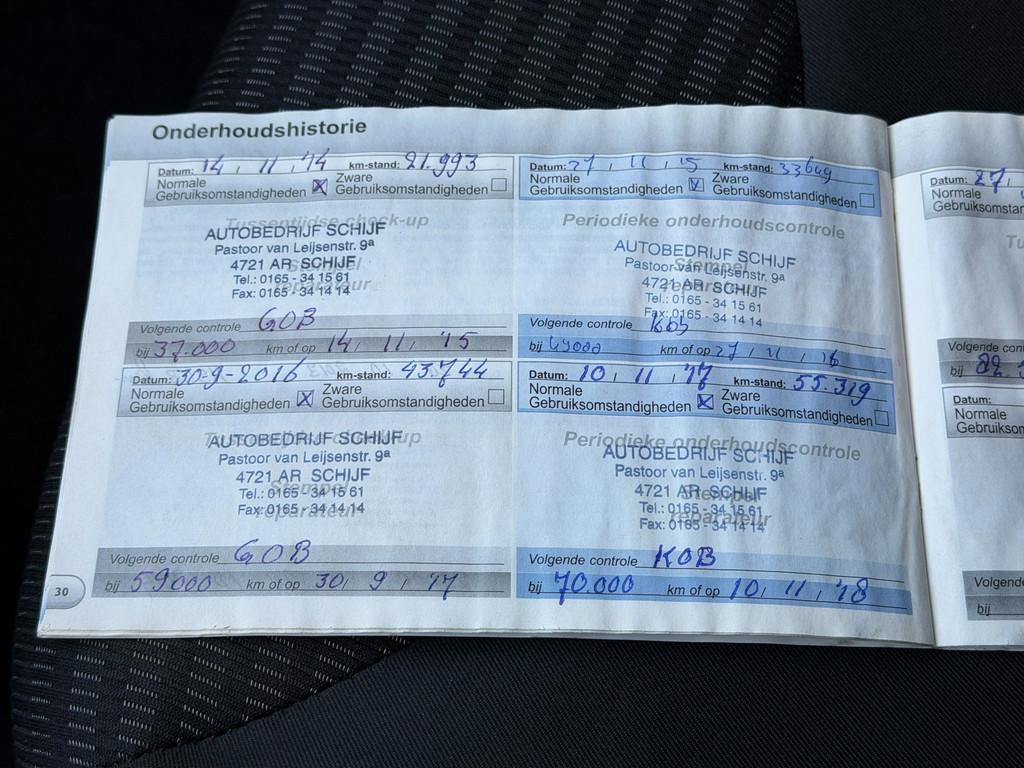 Onderhoudshistorie
Datum: 14 / 11 / '14 km-stand: 21.993
Normale Gebruiksomstandigheden X Zware Gebruiksomstandigheden
Tussentijdse check-up
AUTOBEDRIJF SCHIJF
Pastoor van Leijsenstr. 9a
4721 AR SCHIJF
Stempel reparateur
Tel.: 0165 - 34 15 61
Fax: 0165 - 34 14 14
Volgende controle GOB
bij 37.000 km of op 14 / 11 / '15
Datum: 27 / 11 / 15 km-stand: 33649
Normale Gebruiksomstandigheden V Zware Gebruiksomstandigheden
Periodieke onderhoudscontrole
AUTOBEDRIJF SCHIJF
Pastoor van Leijsenstr. 9a
4721 AR SCHIJF
Stempel reparateur
Tel.: 0165 - 34 15 61
Fax: 0165 - 34 14 14
Volgende controle KOB
bij 49000 km of op 27 / 11 / 16
Datum: 30-9-2016 km-stand: 43.744
Normale Gebruiksomstandigheden X Zware Gebruiksomstandigheden
AUTOBEDRIJF SCHIJF
Pastoor van Leijsenstr. 9a
4721 AR SCHIJF
Stempel reparateur
Tel.: 0165 - 34 15 61
Fax: 0165 - 34 14 14
Volgende controle GOB
bij 59000 km of op 30 / 9 / '17
Datum: 10 / 11 / '17 km-stand: 55.319
Normale Gebruiksomstandigheden X Zware Gebruiksomstandigheden
Periodieke onderhoudscontrole
AUTOBEDRIJF SCHIJF
Pastoor van Leijsenstr. 9a
4721 AR SCHIJF
Stempel reparateur
Tel.: 0165 - 34 15 61
Fax: 0165 - 34 14 14
Volgende controle KOB
bij 70.000 km of op 10 / 11 / '18
30
Datum: 27 /
Normale
Volgende
bij 82
Datum:
Normale
Volgende
bij